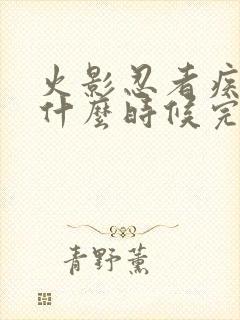 火影忍者疾
什麼時候完
青野薰